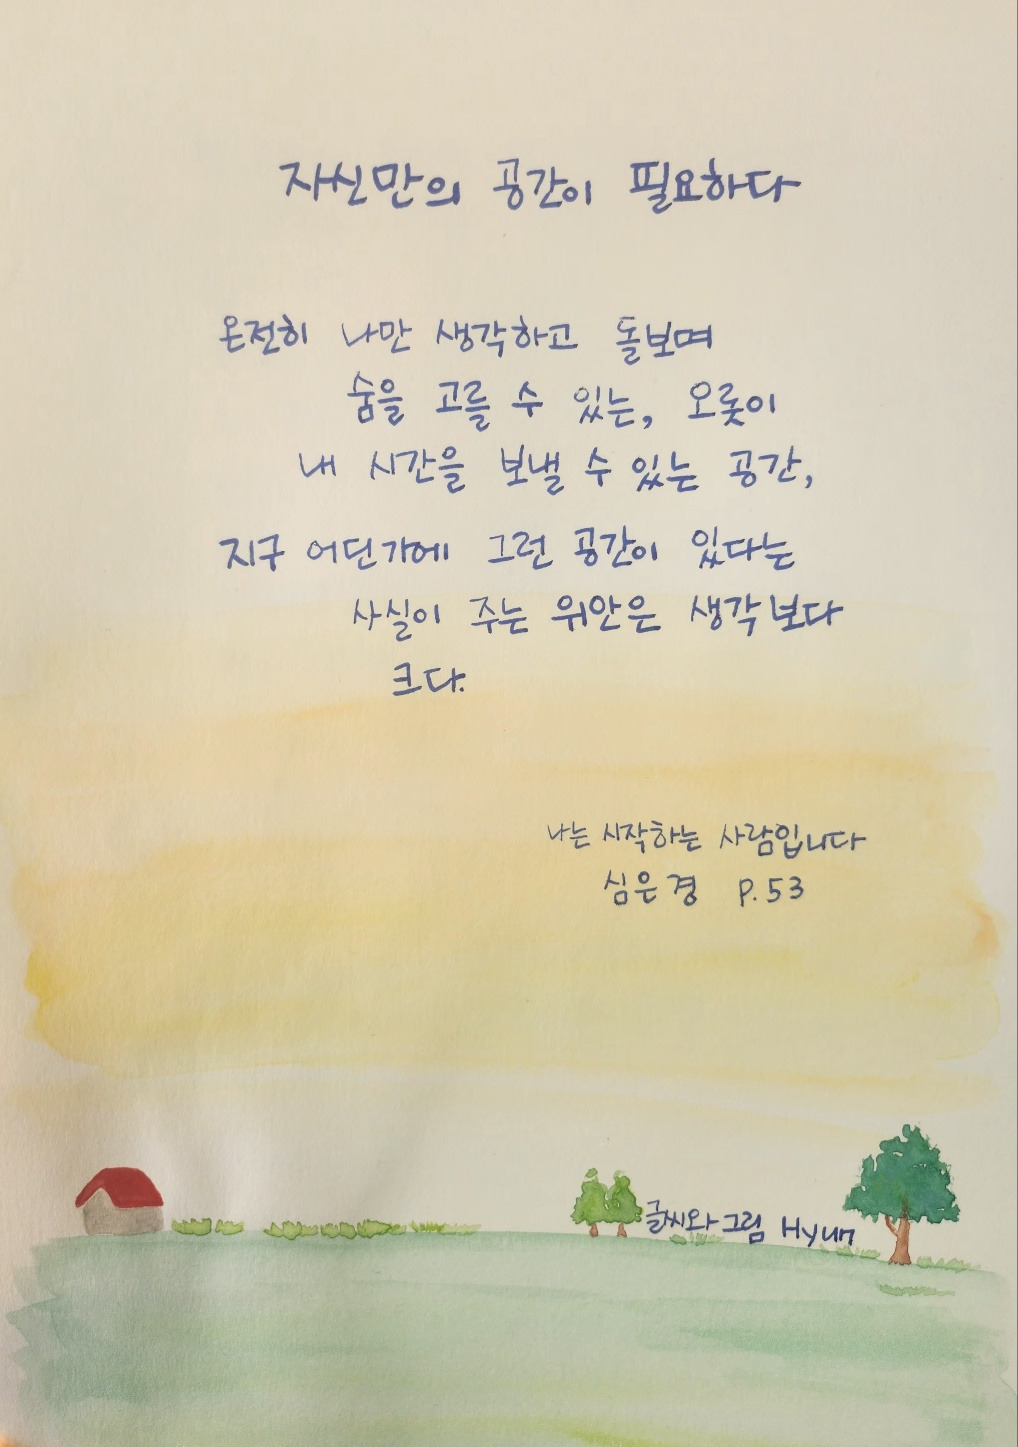 자신만의 공간이 필요하다
온전히 나만 생각하고 돌보며
숨을 고를 수 있는, 오롯이
내 시간을 보낼 수 있는 공간,
지구 어딘가에 그런 공간이 있다는
사실이 주는 위안은 생각보다
크다.
나는 시작하는 사람입니다
심은경 P.53
글씨와 그림 Hyun